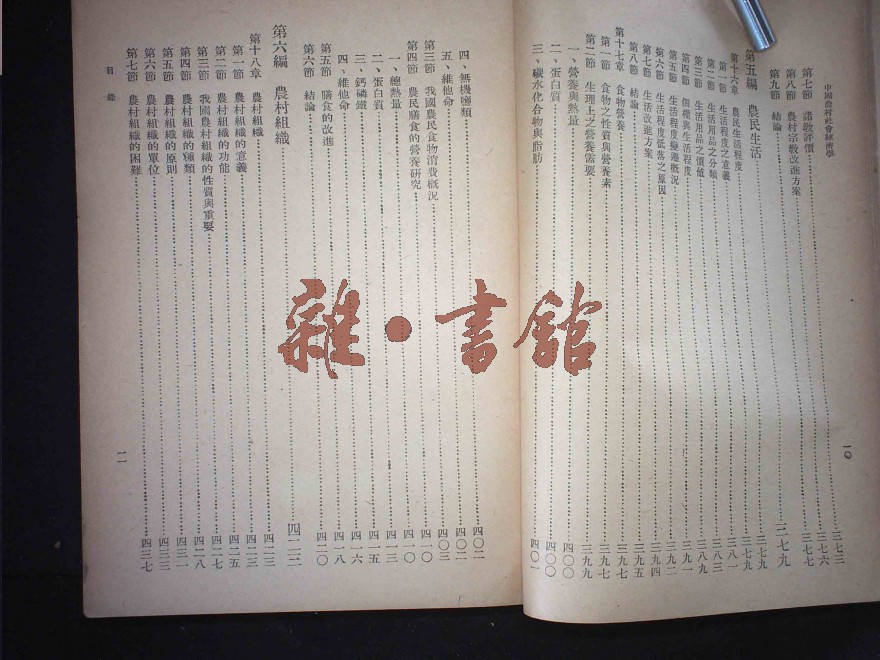 中國農村社會經濟學
一〇
第七節 諸教評價 三七三
第八節 農村宗教改進方案 三七六
第九節 結論 三七七
第五編 農民生活 三七九
第十六章 農民生活程度 三七九
第一節 生活程度之意義 三七九
第二節 生活用品之分類 三八一
第三節 生活用品之價值 三八三
第四節 個機與生活程度 三八九
第五節 生活程度變遷概況 三九一
第六節 生活程度低落之原因 三九二
第七節 生活改進方案 三九四
第八節 結論 三九五
第十七章 食物營養 三九七
第一節 食物之性質與營養素 三九七
第二節 生理上之營養需要 三九九
一、營養與熱量 四〇〇
二、蛋白質 四〇〇
三、碳水化合物與脂肪 四〇一
四、無機鹽類 四〇二
五、維他命 四〇二
第三節 我國農民食物消費概況 四〇三
第四節 農民膳食的營養研究 四一〇
一、總熱量 四一〇
二、蛋白質 四一三
三、鈣磷鐵 四一五
四、維他命 四一六
第五節 膳食的改進 四一八
第六節 結論 四二〇
第六編 農村組織 四二三
第十八章 農村組織 四二三
第一節 農村組織的意義 四二三
第二節 農村組織的功能 四二五
第三節 我國農村組織的性質與重要 四二七
第四節 農村組織的種類 四二八
第五節 農村組織的原則 四三一
第六節 農村組織的單位 四三三
第七節 農村組織的困難 四三七
目錄
一一
雜·書館